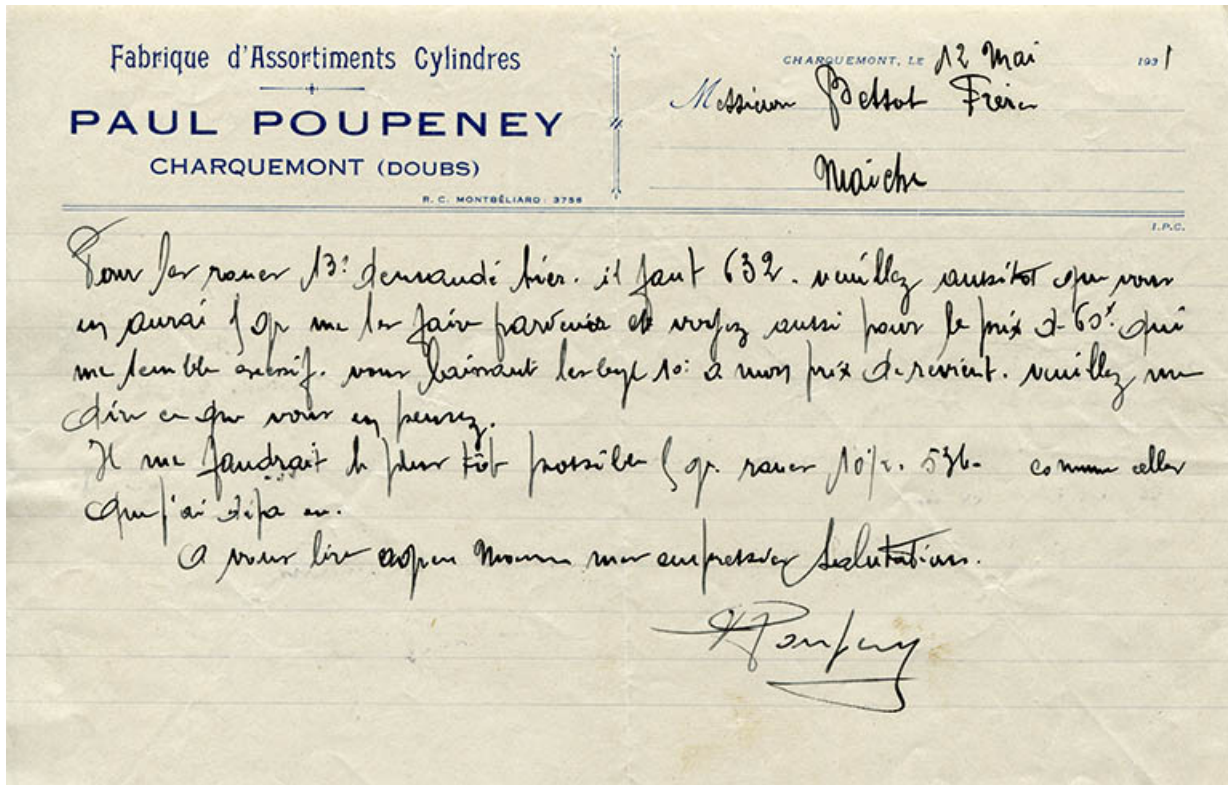 Fabrique d'Assortiments Cylindres
PAUL POUPENEY
CHARQUEMONT (DOUBS)
R. C. MONTBÉLIARD : 3756
CHARQUEMONT, LE 12 Mai 1931
Messieurs Bessot Frères
Maiche
I.P.C.
Pour les roues 13? demandé hier. il faut 632. veuillez aussitot que vous
en aurai me les faire parvenir et voyez aussi pour le prix de 60? qui
me semble exessif. vous laissant les 10? a mon prix de revient. veuillez me
dire ce que vous en pensez.
Il me faudrait le plus tôt possible roues 10½. 536. comme celles
que j'ai deja eu.
A vous lire mes empressées Salutations.
Poupeney